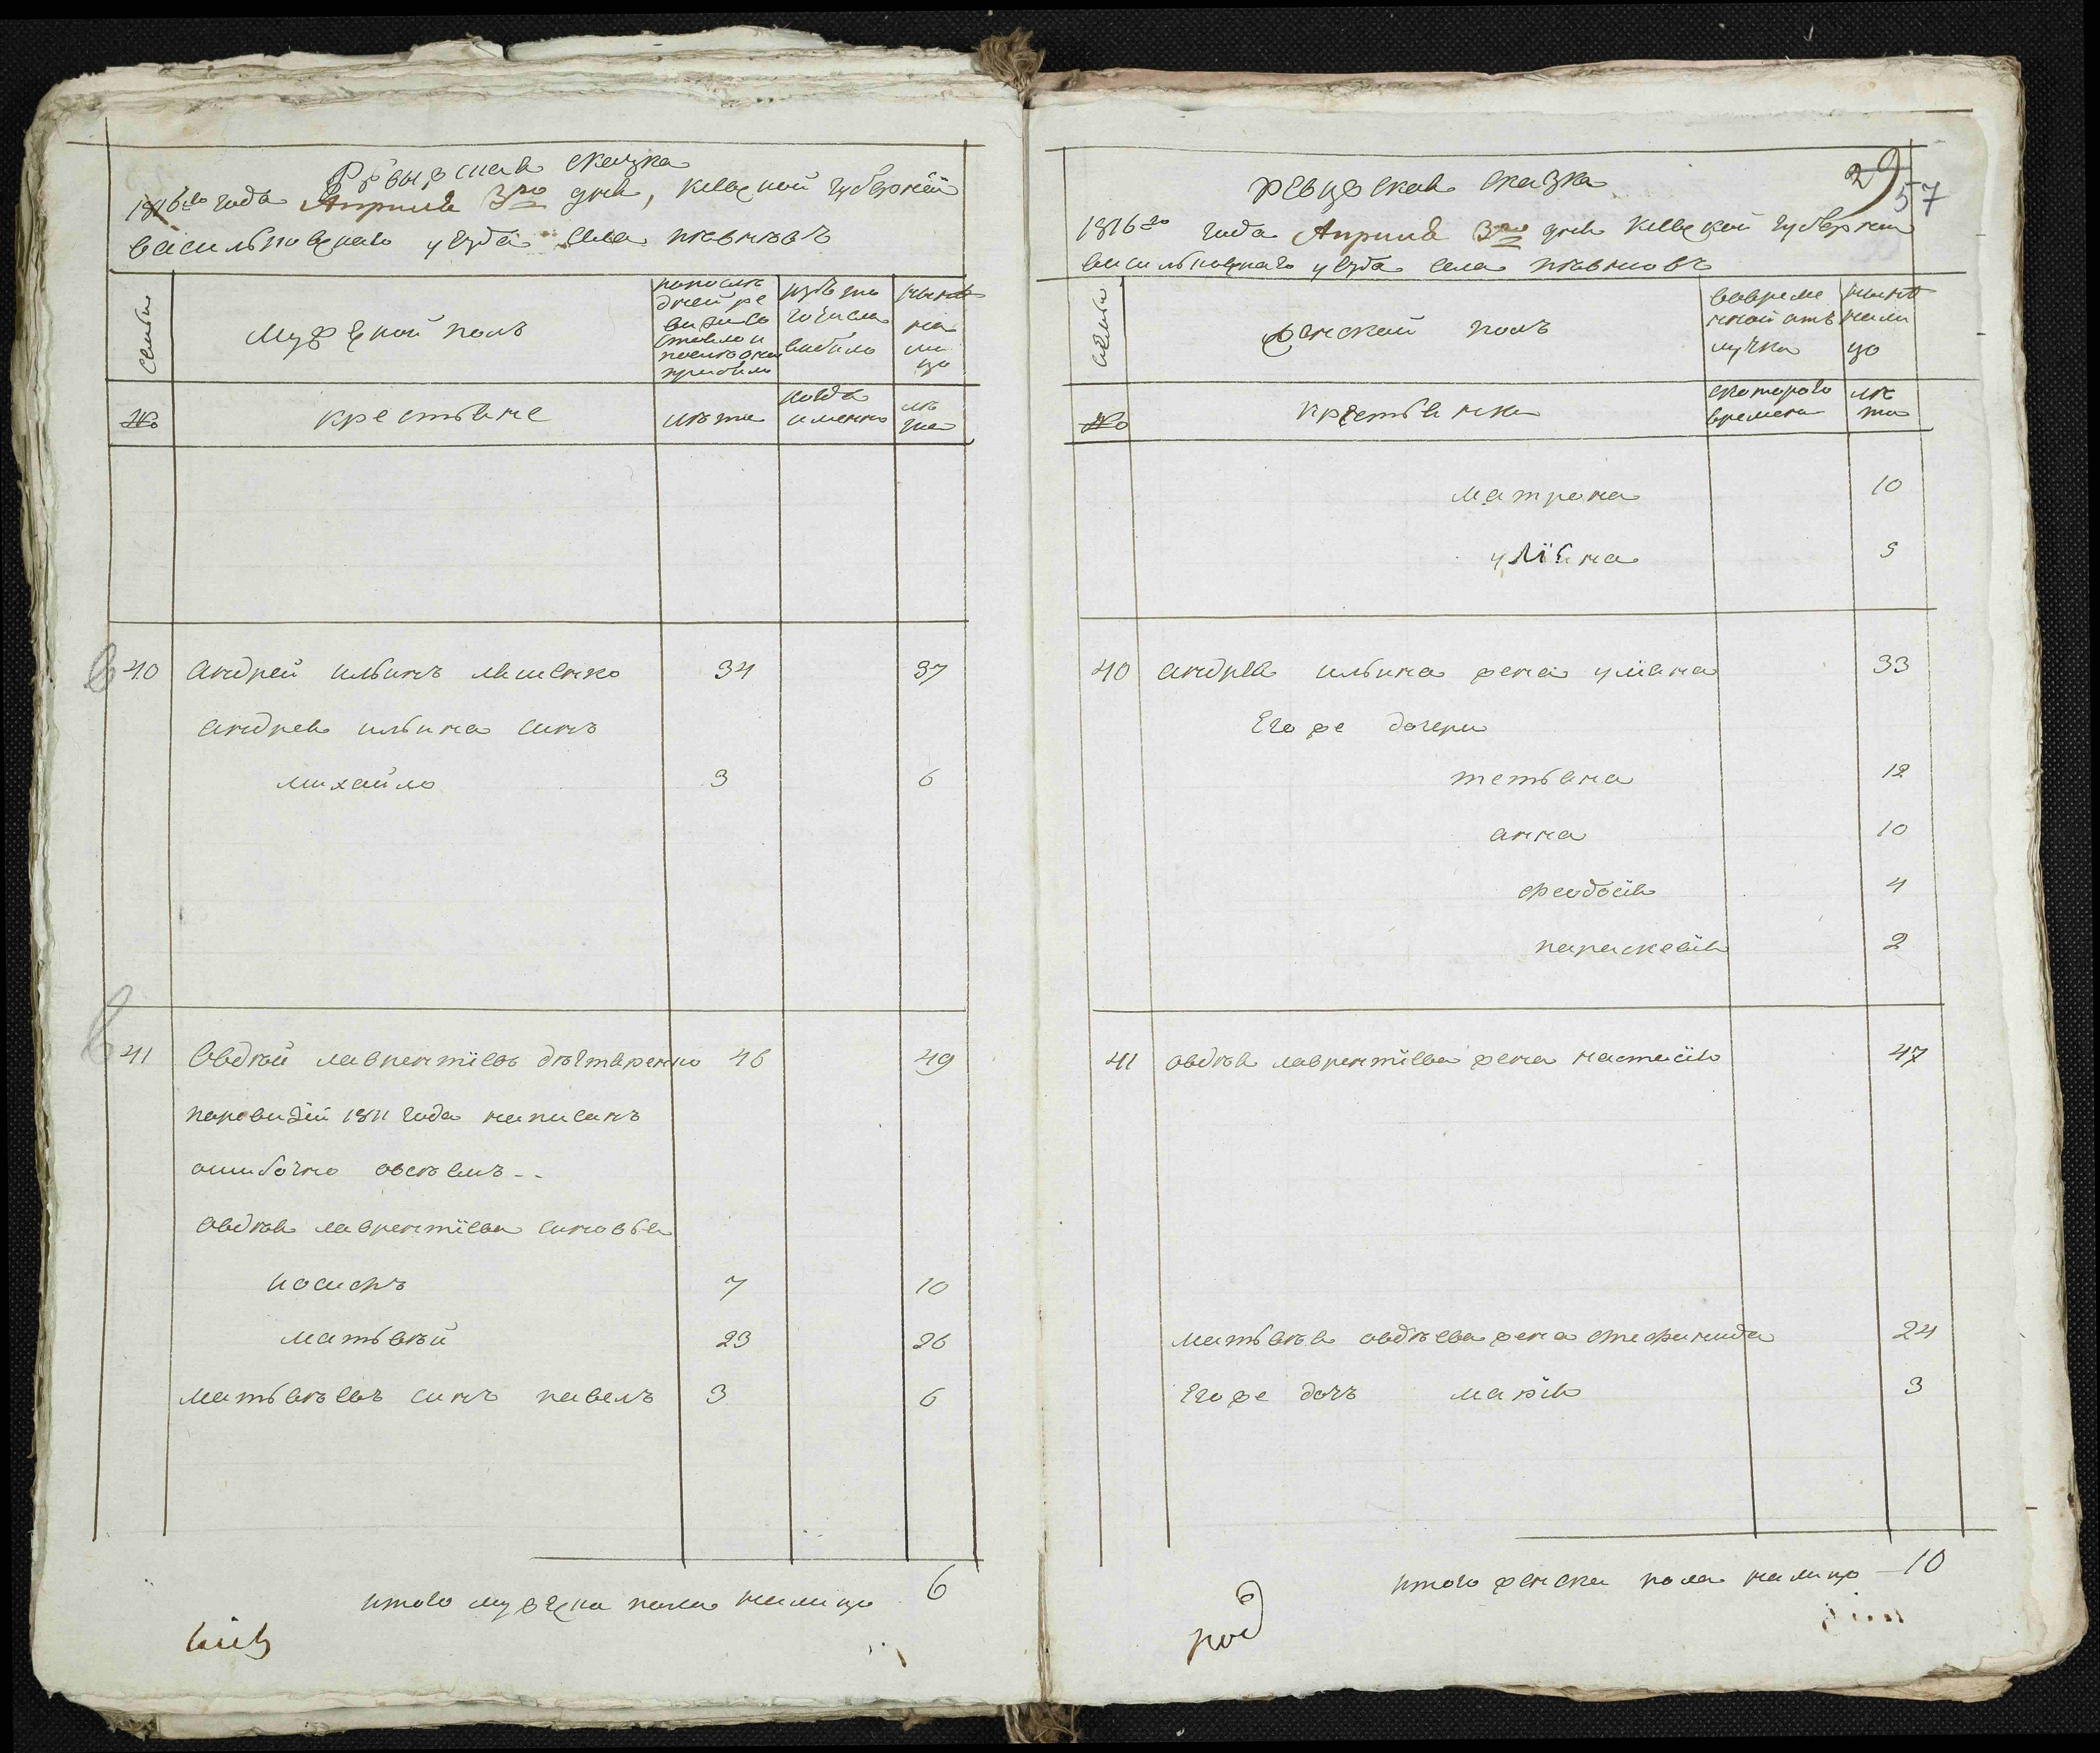 Ревизская сказка
1816го года Апреля 3го дня, киевской губернїи
васильковскаго уезда села
семьи
Мужеской полъ
по последней ревизіи состояло и после оной прибыло
изъ того числа выбыло
ныне на лицо
№
крестьяне
лета
когда именно
лета
40 андрей ильинъ ляшенко 34 37
андрея ильина синъ
михайло 3 6
41 Овдѣй лаврентїевъ 46 49
поревизїи 1811 года написанъ
ошибочно овсѣемъ --
Овдѣя лаврентїева синовья
иосифъ 7 10
матьвѣй 23 26
матьвѣевъ синъ павелъ 3 6
итого мужеска пола налицо 6
29
57
ревизская сказка
1816го года Апреля 3го дня киевской губернїи
васильковскаго уезда села
семьи
женской полъ
вовременной отлучки
ныне налицо
№
крестьянки
скотораго времени
лѣта
матрона 10
улїяна 5
40 андрея ильина жена улїяна 33
Его же дочери
тетьяна 12
анна 10
феодосїя 4
параскевїя 2
41 овдѣя лаврентїева жена настасїя 47
матьвѣя овдѣева жена стефанида 24
Его же дочъ марїя 3
итого женска пола налицо 10
под